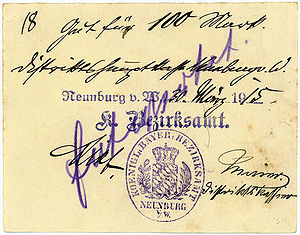 18 Gut für 100 Mark.
Distriktshauptkasse Neunburg v. W.
Neunburg v. W. 30. März 1915.
K. Bezirksamt.
KOENIGL. BAYER. BEZIRKSAMT
NEUNBURG
v/W.
Distriktskassier